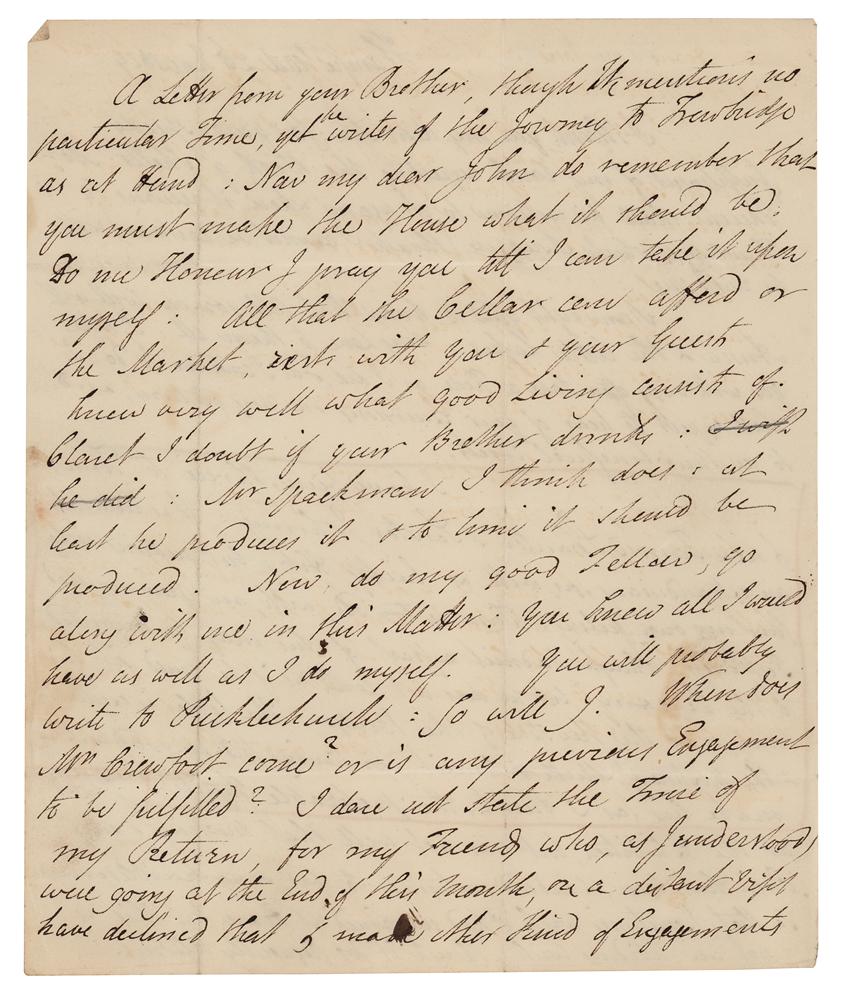 A Letter from your Brother, though He mentions no
particular Time, yet he writes of the Journey to Trowbridge
as at Hand : Now my dear John do remember that
you must make the House what it should be.
Do me Honour I pray you till I can take it upon
myself : All that the Cellar can afford or
the Market, rests with you & your Guests
know very well what good Living consists of.
Claret I doubt if your Brother drinks : I wish
he did : Mr Spackman I think does : at
least he produces it & to him it should be
produced. Now do my good Fellow, go
along with me in this Matter : you know all I would
have as well as I do myself. You will probably
write to Pucklechurch : So will I. When does
Mrs Crowfoot come? or is any previous Engagement
to be fulfilled? I dare not state the Time of
my Return, for my Friends who, as I understood,
were going at the End of this Month, on a distant Visit
have declined that & made other Kind of Engagements